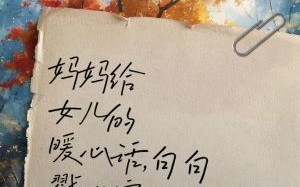 妈妈给
女儿的
暖心话,句句